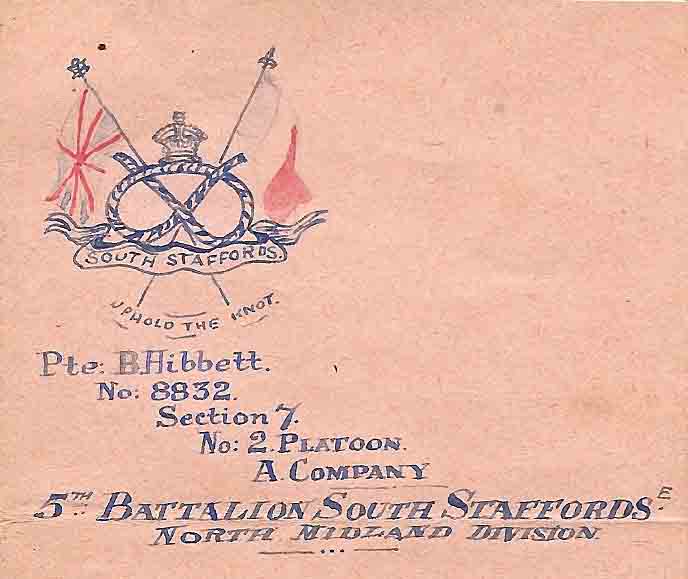 SOUTH STAFFORDS.
UPHOLD THE KNOT.
Pte: B. Hibbett.
No: 8832.
Section 7.
No: 2. PLATOON.
A. COMPANY
5TH BATTALION SOUTH STAFFORDSE
NORTH MIDLAND DIVISION.